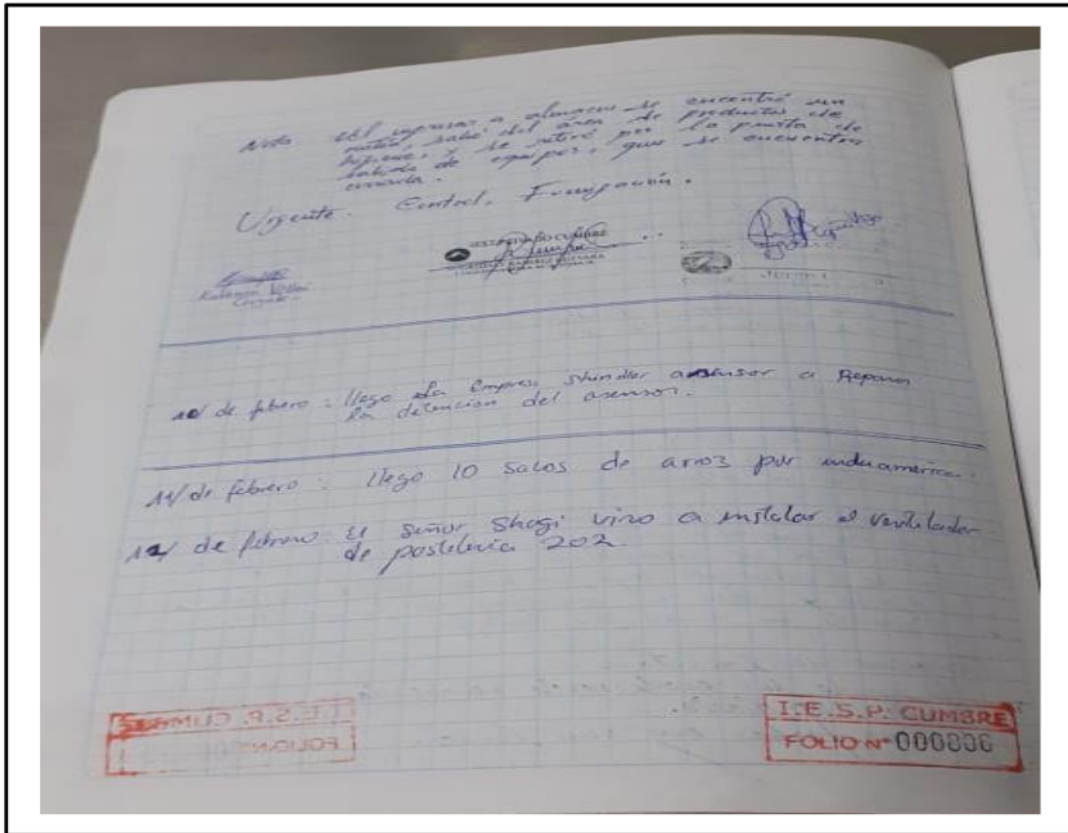 Nota: Al ingresar a almacen se encontró un
ratón, salió del área de productos de
higiene, y se retiró por la puerta de
salida de equipos, que se encuentra
cerrada.
Urgente. Control, Fumigación.
10/ de febrero : llego la Empresa shindler asensor a Reparar
la detencion del asensor.
11/ de febrero : llego 10 sacos de arroz por induamerica.
12/ de febrero : El señor Shagi vino a instalar el ventilador
de pasteleria 202.
I.E.S.P. CUMBRE
FOLIO Nº 000006